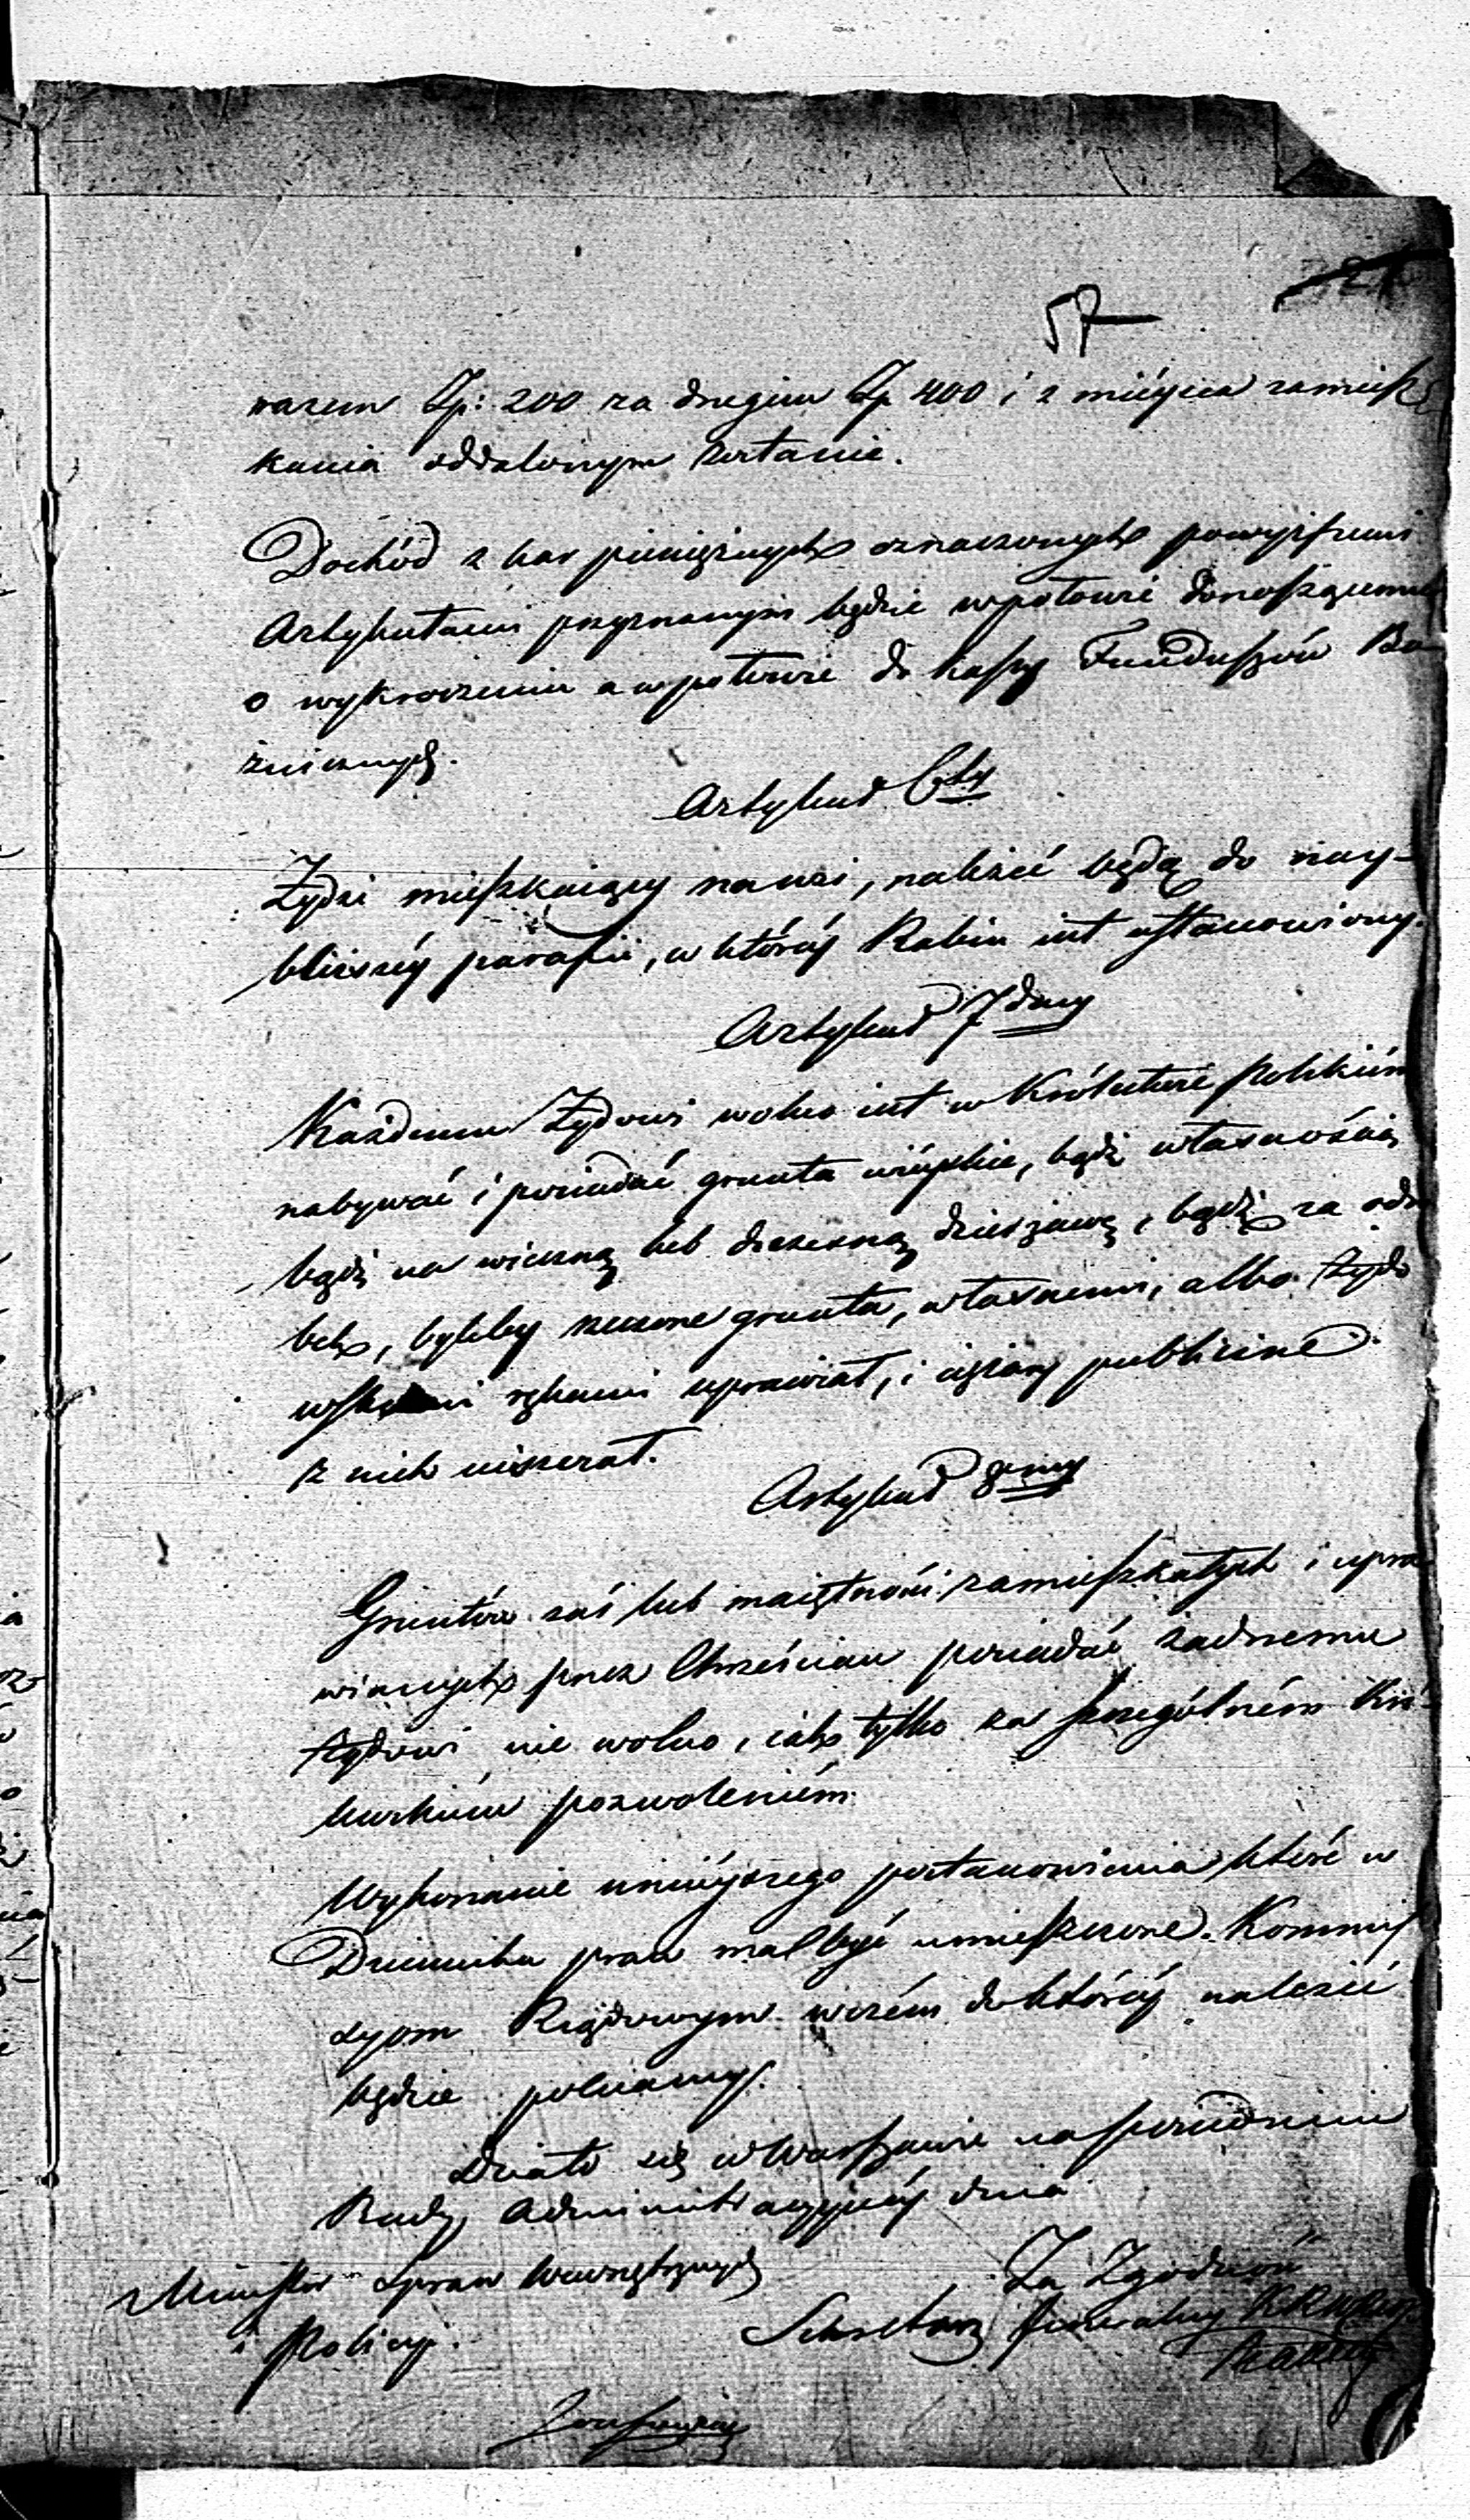 57
razem Zp: 200 za drugim Zp 400 i z mieysca zamiesz
kania oddalonym zostanie.
Dochód z kar pieniężnych oznaczonych powyższemi
Artykułami przyznanym będzie wpołowie donoszącemu
o wykroczeniu a wpołowie do kassy Funduszów Bo
żnicznych.
Artykuł 6ty
Żydzi mieszkaiący na wsi, należeć będą do nay-
bliższéy parafii, w któréy Rabin iest ustanowiony.
Artykuł 7dmy
Każdemu Żydowi wolno iest w Królestwie Polskiém
nabywać i posiadać grunta wieyskie, bądź własnością
bądź na wieczną lub doczesną dzierżawę, bądź za odro
bek, byleby rzeczone grunta, własnemi, albo żydo
wskiemi rękami uprawiał, i ciężary publiczne
z nich uiszczał.
Artykuł 8my
Gruntów zaś lub maiętności zamieszkałych i upra
wianych przez Chrześcian posiadać żadnemu
Żydowi nie wolno, iak tylko za szczególném
pozwoleniém.
Wykonanie ninieyszego postanowienia które w
Dzienniku praw ma być umieszczone. Kommis
syom Rządowym wczém do któréy należéć
będzie polecamy.
Działo się w Warszawie na posiedzeniu
Rady Administracyjnéy dnia
Minister Spraw Wewnętrznych
i Policyi.
Za Zgodność
Sekretarz Jeneralny